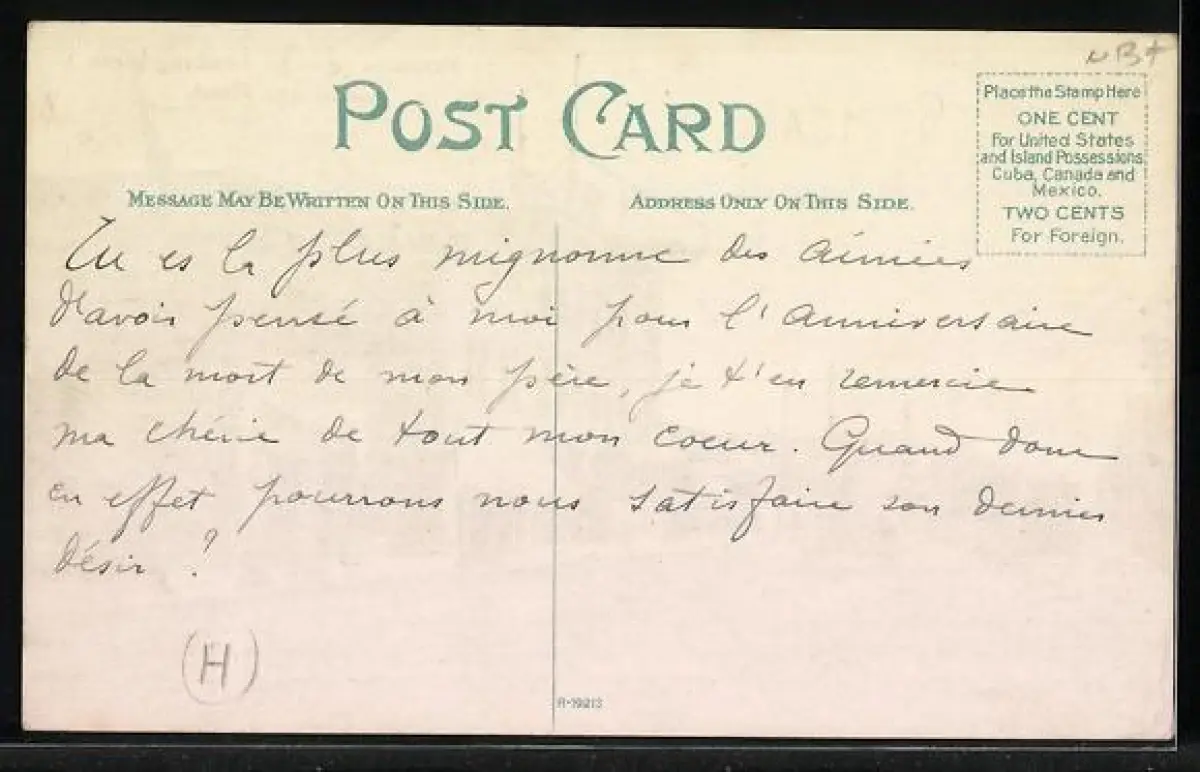 NB+
POST CARD
Place the Stamp Here
ONE CENT
For United States
and Island Possessions,
Cuba, Canada and
Mexico.
TWO CENTS
For Foreign.
MESSAGE MAY BE WRITTEN ON THIS SIDE.
ADDRESS ONLY ON THIS SIDE.
Tu es la plus mignonne des aimées
d'avoir pensé à moi pour l'anniversaire
de la mort de mon père, je t'en remercie
ma chérie de tout mon coeur. Quand donc
en effet pourrons nous satisfaire son dernier
désir ?
(H)
R-19213